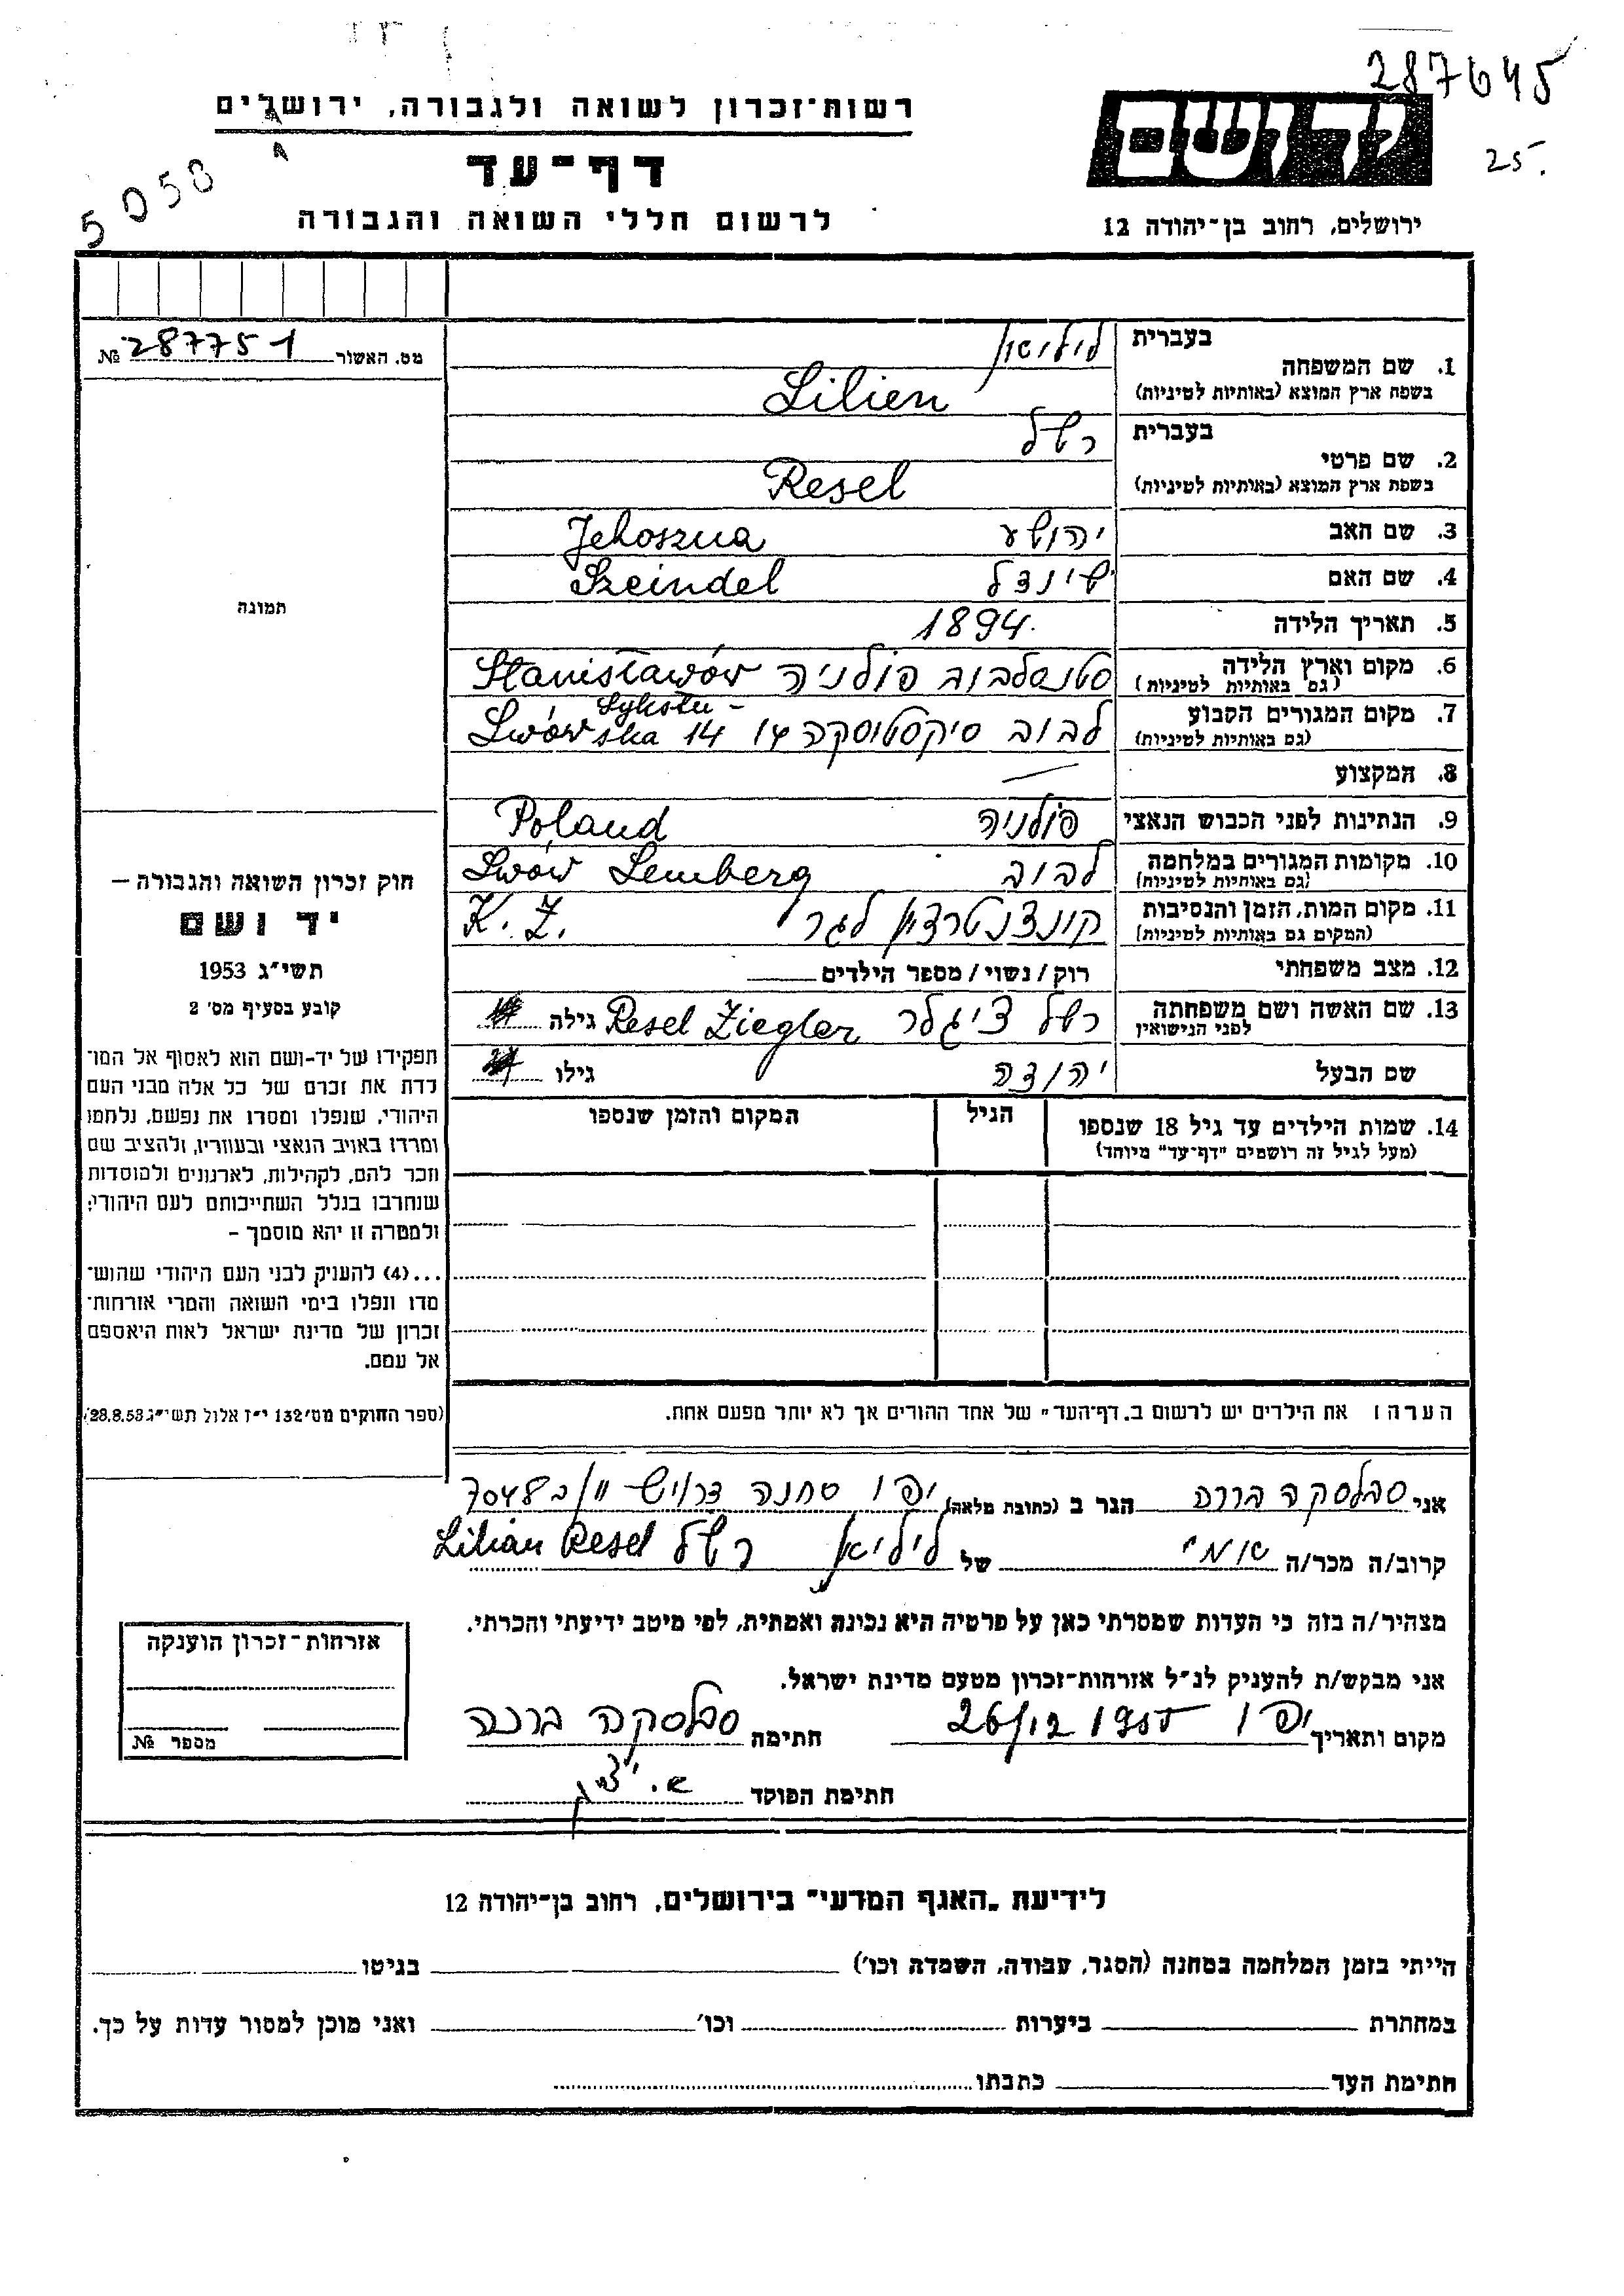 287645
25.
5058
רשות־זכרון לשואה ולגבורה, ירושלים
דף־עד
לרשום חללי השואה והגבורה
ידושם
ירושלים, רחוב בן־יהודה 12
מס. האשור № 287751
תמונה
חוק זכרון השואה והגבורה –
יד ושם
תשי״ג 1953
קובע בסעיף מס׳ 2
תפקידו של יד-ושם הוא לאסוף אל המו־
לדת את זכרם של כל אלה מבני העם
היהודי, שנפלו ומסרו את נפשם, נלחמו
ומרדו באויב הנאצי ובעוזריו, ולהציב שם
וזכר להם, לקהילות, לארגונים ולמוסדות
שנחרבו בגלל השתייכותם לעם היהודי;
ולמטרה זו יהא מוסמך –
...(4) להעניק לבני העם היהודי שהוש־
מדו ונפלו בימי השואה והמרי אזרחות־
זכרון של מדינת ישראל לאות היאספם
אל עמם.
(ספר החוקים מס׳ 132 י״ז אלול תשי״ג 28.8.53)
בעברית ליליאן
1. שם המשפחה
בשפת ארץ המוצא (באותיות לטיניות) Lilien
בעברית רשל
2. שם פרטי
בשפת ארץ המוצא (באותיות לטיניות) Resel
3. שם האב יהושע Jehoszua
4. שם האם שינדל Szeindel
5. תאריך הלידה 1894.
6. מקום וארץ הלידה סטנסלבוב פולניה Stanisławów
(גם באותיות לטיניות)
7. מקום המגורים הקבוע לבוב סיקסטוסקה 14 Lwów Sykstu-ska 14
(גם באותיות לטיניות)
8. המקצוע —
9. הנתינות לפני הכבוש הנאצי פולניה Poland
10. מקומות המגורים במלחמה לבוב Lwów Lemberg
(גם באותיות לטיניות)
11. מקום המות, הזמן והנסיבות קונצנטרציון לגר K. Z.
(המקום גם באותיות לטיניות)
12. מצב משפחתי רוק / נשוי / מספר הילדים
13. שם האשה ושם משפחתה רשל ציגלר Resel Ziegler גילה
לפני הנישואין
שם הבעל יהודה גילו
14. שמות הילדים עד גיל 18 שנספו הגיל המקום והזמן שנספו
(מעל לגיל זה רושמים ״דף־עד״ מיוחד)
הערה: את הילדים יש לרשום ב„דף־העד״ של אחד ההורים אך לא יותר מפעם אחת.
אני סבלסקה ברכה הגר ב (כתובת מלאה) יפו סחנה דרויש 7048
קרוב/ה מכר/ה של ליליאן רשל Lilian Resel
מצהיר/ה בזה כי העדות שמסרתי כאן על פרטיה היא נכונה ואמתית, לפי מיטב ידיעתי והכרתי.
אני מבקש/ת להעניק לנ״ל אזרחות־זכרון מטעם מדינת ישראל.
מקום ותאריך יפו 26/12 1955 חתימה סבלסקה ברכה
חתימת הפוקד
אזרחות־זכרון הוענקה
מספר №
לידיעת „האגף המדעי״ בירושלים, רחוב בן־יהודה 12
הייתי בזמן המלחמה במחנה (הסגר, עבודה, השמדה וכו׳) בגיטו
במחתרת ביערות וכו׳ ואני מוכן למסור עדות על כך.
חתימת העד כתבתו